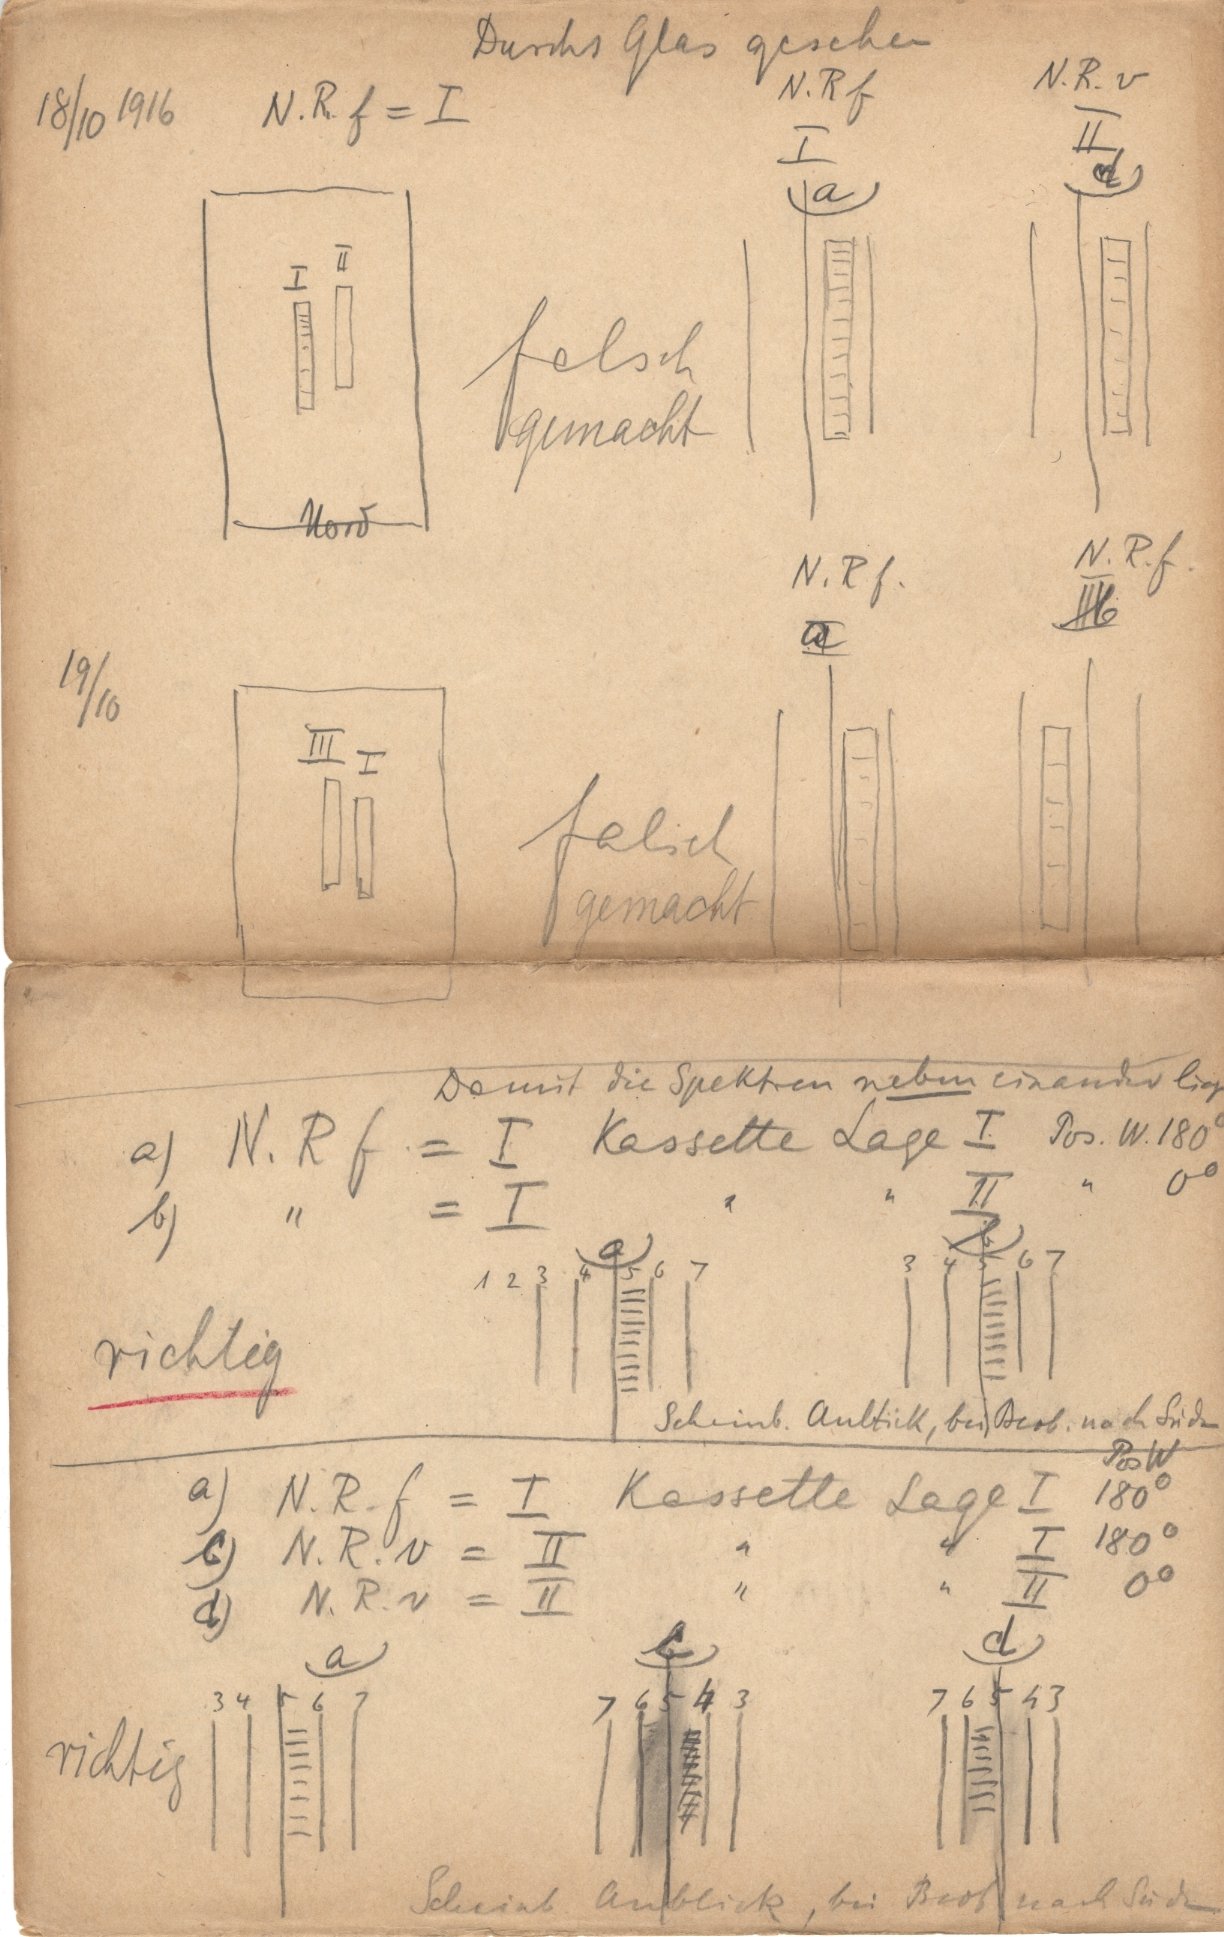 Durchs Glas gesehen
18/10 1916 N.R.f = I
N.R f N.R.v
I II
a d
I II
falsch
gemacht
Nord
N.R f. N.R.f.
19/10
III I
falsch
gemacht
Damit die Spektren neben einander
a) N.R f. = I Kassette Lage I Pos. W. 180°
b) " = I " " II " 0°
a
1 2 3 4 5 6 7 3 4 5 6 7
richtig
Scheinb. Anblick, bei Beob. nach Süden
Pos W
a) N.R.f = I Kassette Lage I 180°
c) N.R.v = II " " I 180°
d) N.R.v = II " " II 0°
a c d
3 4 5 6 7 7 6 5 4 3 7 6 5 4 3
richtig
Scheinb. Anblick, bei Beob. nach Süden